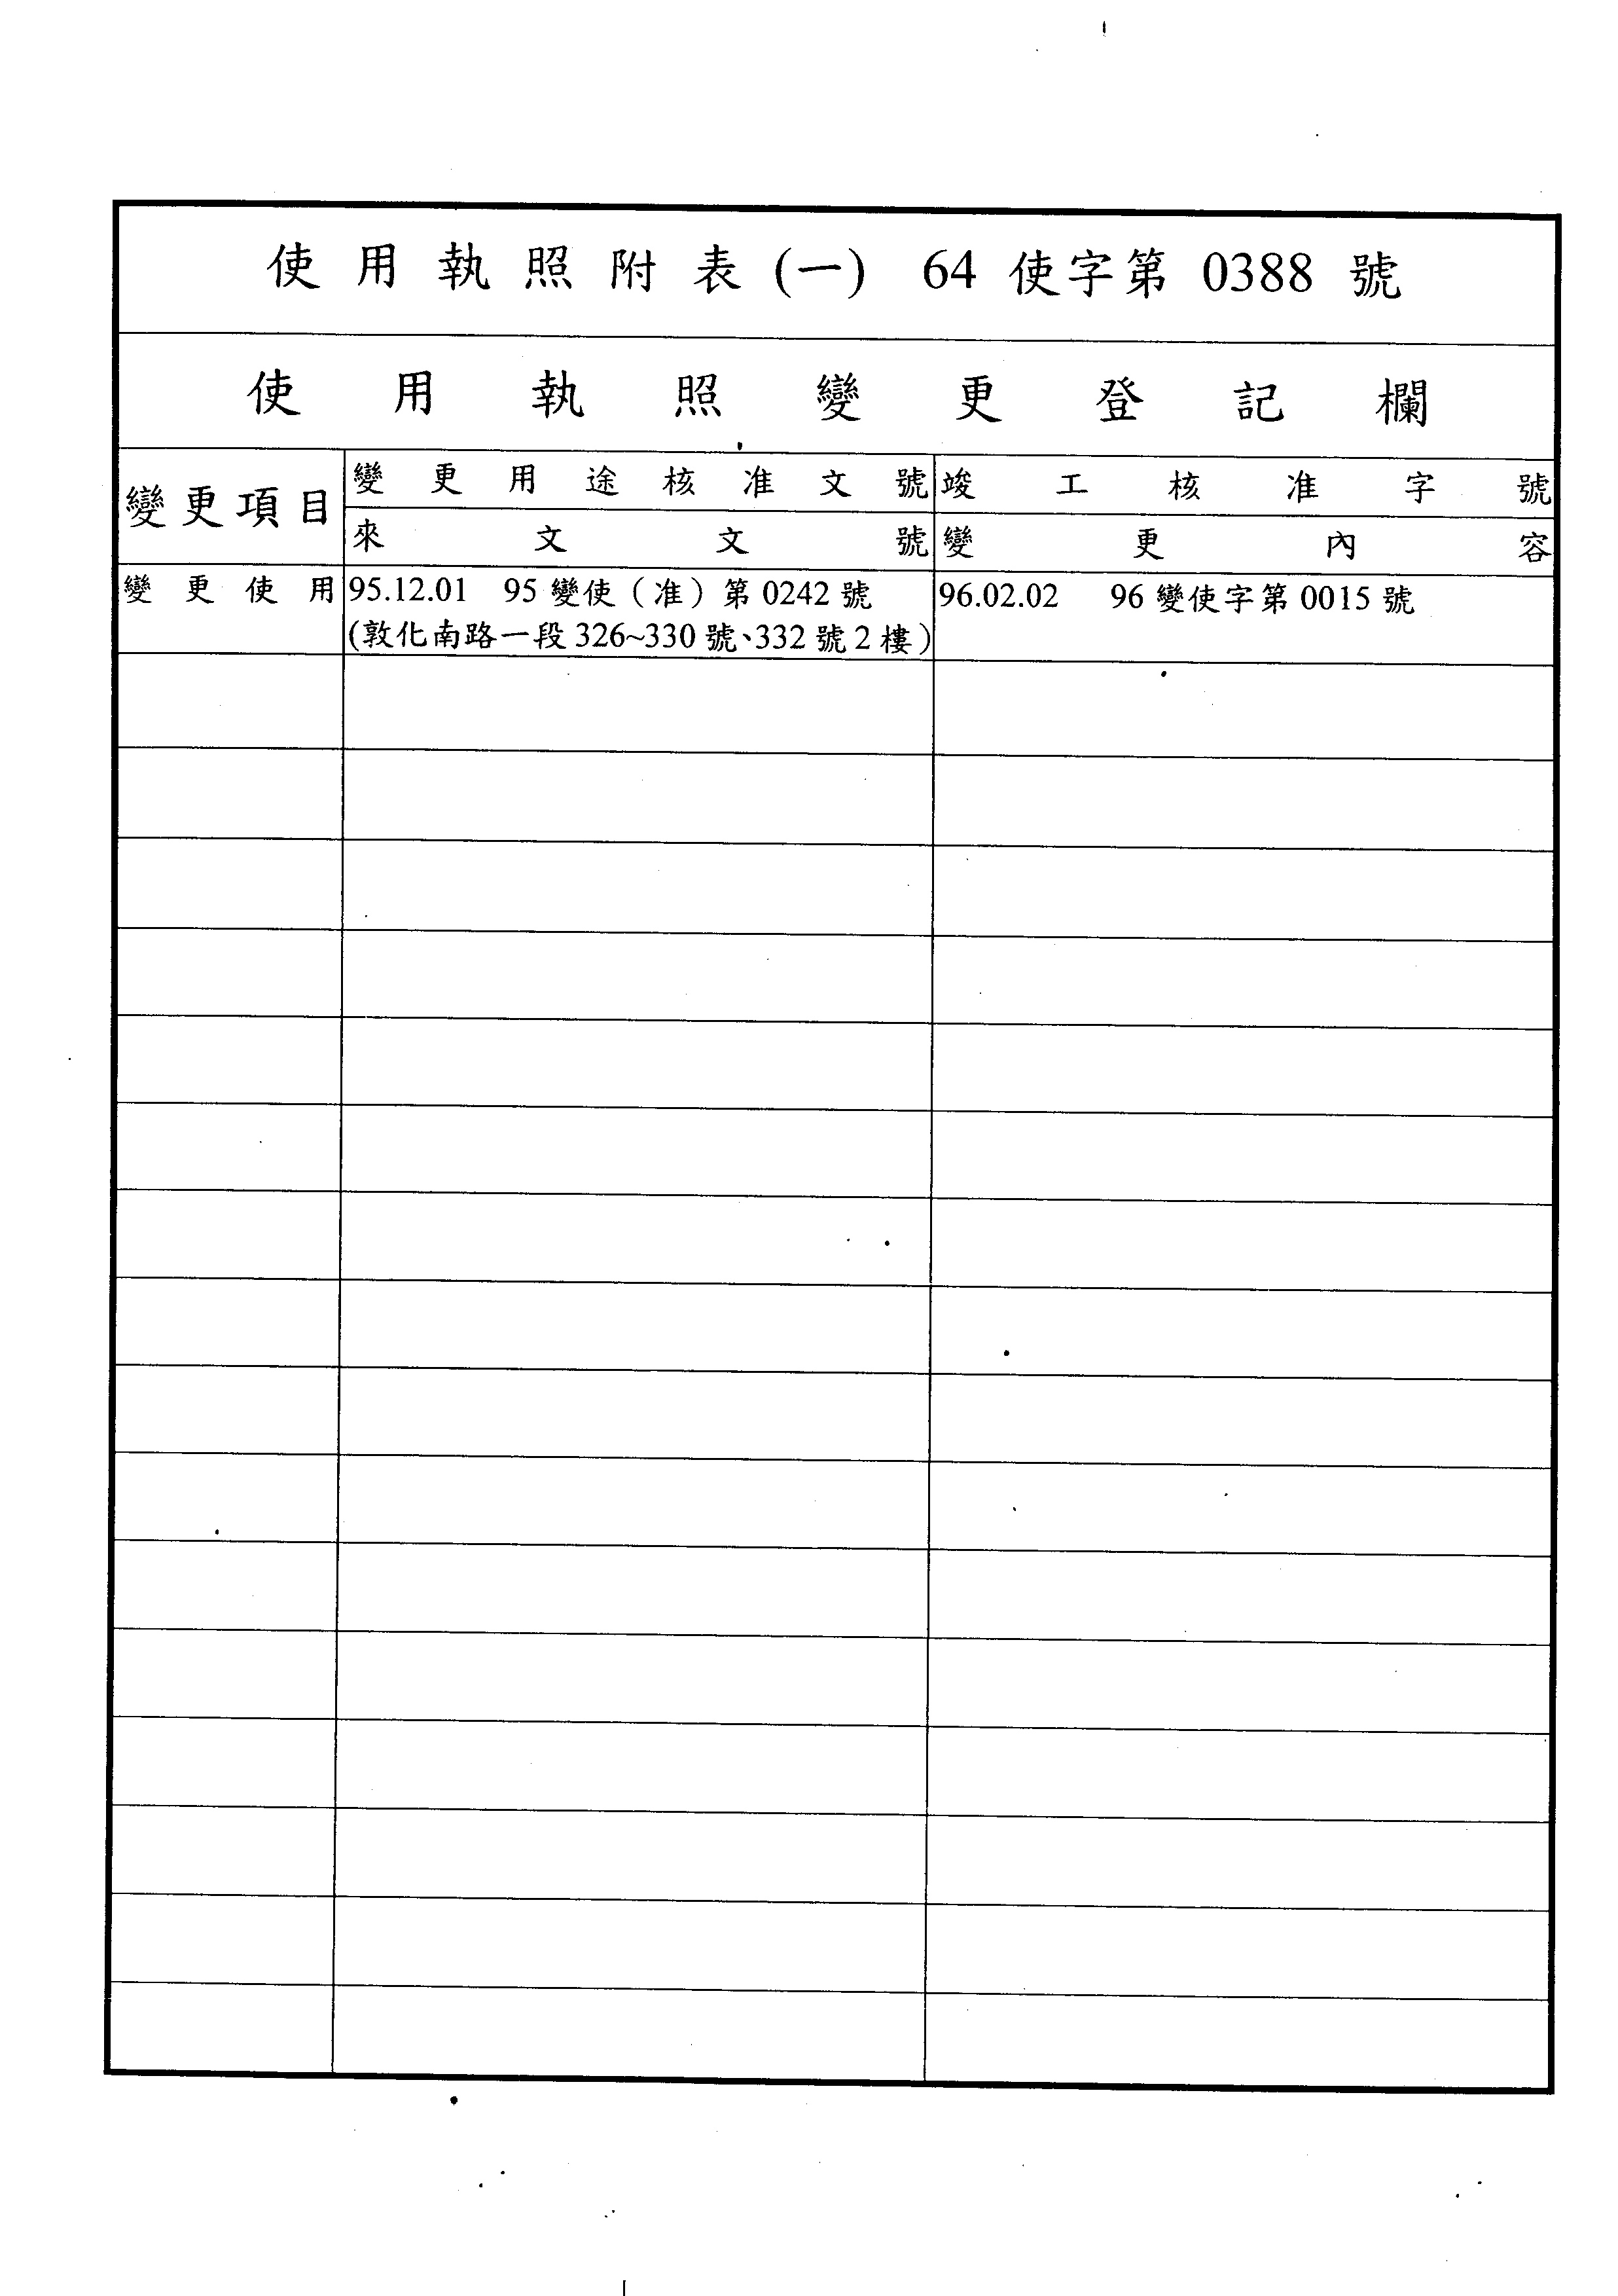 使用執照附表(一) 64 使字第 0388 號
使用執照變更登記欄
變更項目
變更用途核准文號
竣工核准字號
來文文號
變更內容
變更使用
95.12.01 95 變使（准）第 0242 號
(敦化南路一段 326~330 號、332 號 2 樓)
96.02.02 96 變使字第 0015 號